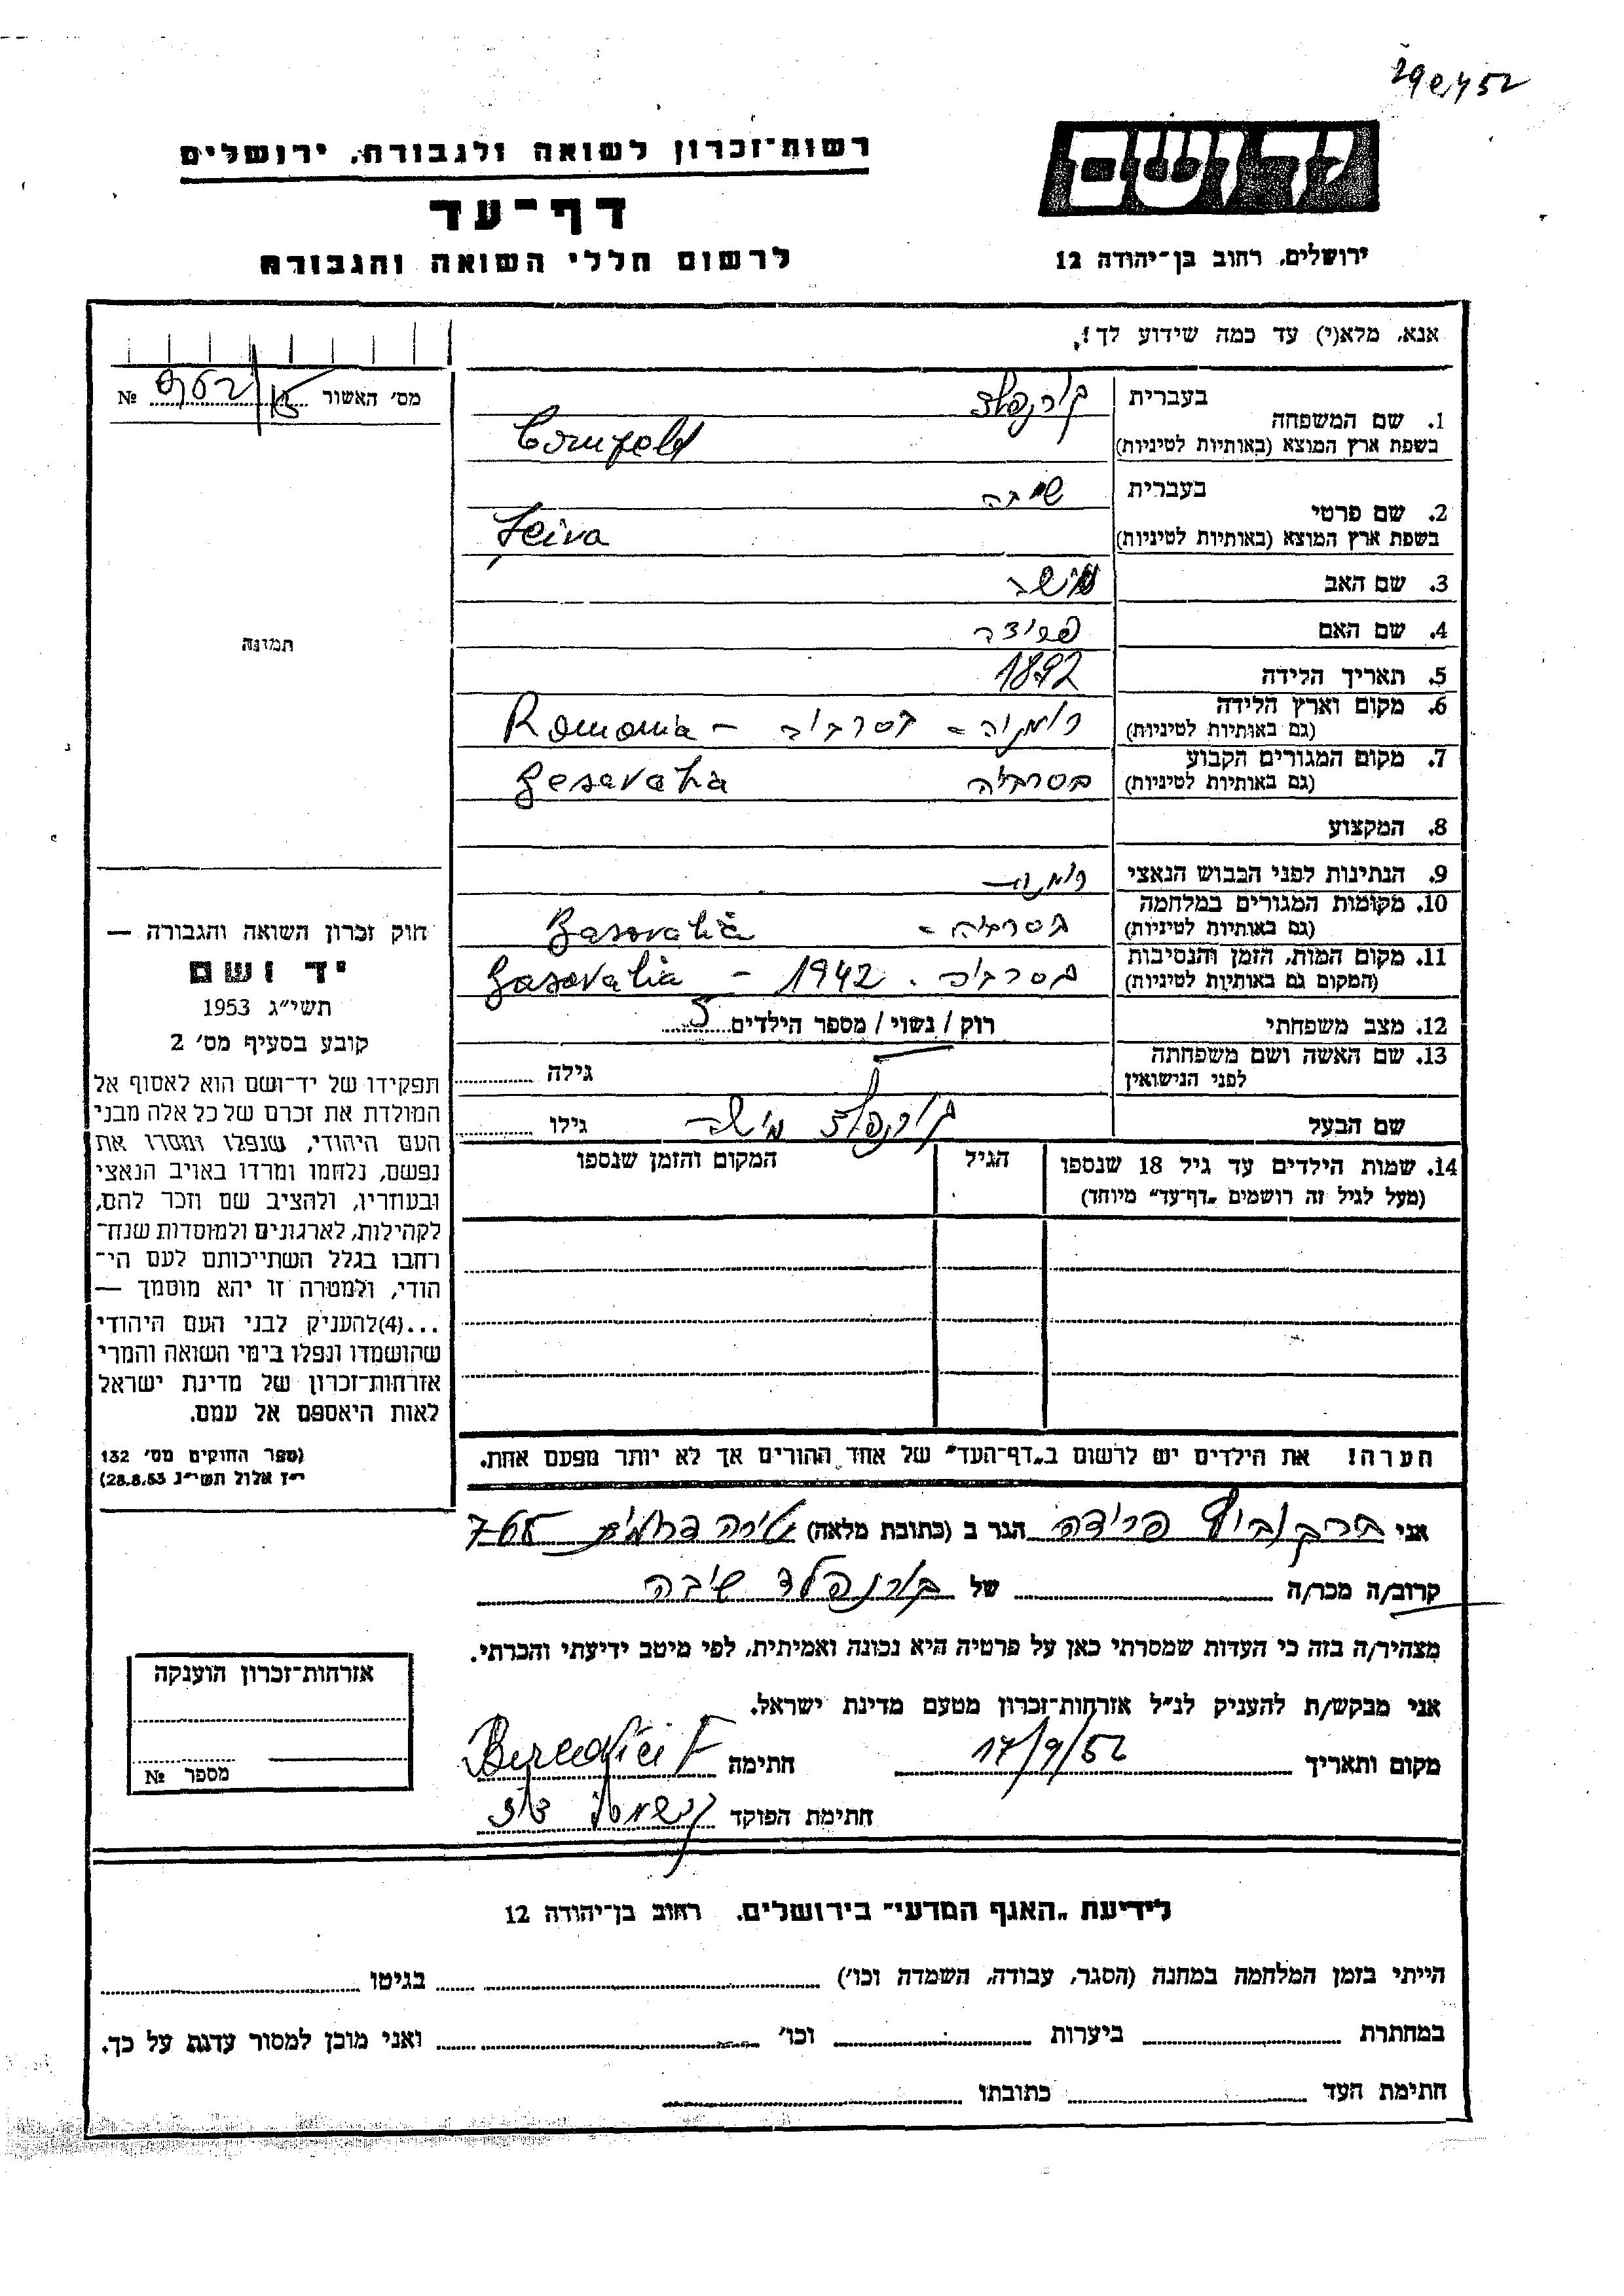 יד ושם
ירושלים, רחוב בן־יהודה 12
רשות־זכרון לשואה ולגבורה, ירושלים
דף־עד
לרשום חללי השואה והגבורה
אנא, מלא(י) עד כמה שידוע לך!
מס׳ האשור №
1. שם המשפחה
בעברית קורנפלד
בשפת ארץ המוצא (באותיות לטיניות) Cornfeld
2. שם פרטי
בעברית שיבה
בשפת ארץ המוצא (באותיות לטיניות) Seiva
3. שם האב
4. שם האם
5. תאריך הלידה 1892
6. מקום וארץ הלידה
(גם באותיות לטיניות) רומניה - בסרביה - Romania
7. מקום המגורים הקבוע
(גם באותיות לטיניות) בסרביה
8. המקצוע
9. הנתינות לפני הכבוש הנאצי רומנית
10. מקומות המגורים במלחמה
(גם באותיות לטיניות) בסרביה -
11. מקום המות, הזמן והנסיבות
(המקום גם באותיות לטיניות) בסרביה . 1942 -
12. מצב משפחתי רוק / נשוי / מספר הילדים 5
13. שם האשה ושם משפחתה
לפני הנישואין גילה
שם הבעל קורנפלד גילו
14. שמות הילדים עד גיל 18 שנספו
(מעל לגיל זה רושמים „דף־עד״ מיוחד)
הגיל
המקום והזמן שנספו
הערה! את הילדים יש לרשום ב„דף־העד״ של אחד ההורים אך לא יותר מפעם אחת.
תמונה
חוק זכרון השואה והגבורה —
יד ושם
תשי״ג 1953
קובע בסעיף מס׳ 2
תפקידו של יד־ושם הוא לאסוף אל
המולדת את זכרם של כל אלה מבני
העם היהודי, שנפלו ומסרו את
נפשם, נלחמו ומרדו באויב הנאצי
ובעוזריו, ולהציב שם וזכר להם,
לקהילות, לארגונים ולמוסדות שנח־
רחבו בגלל השתייכותם לעם הי־
הודי, ולמטרה זו יהא מוסמך —
...(4)להעניק לבני העם היהודי
שהושמדו ונפלו בימי השואה והמרי
אזרחות־זכרון של מדינת ישראל
לאות היאספם אל עמם.
(ספר החוקים מס׳ 132
י״ז אלול תשי״ג 28.8.53)
אני פרידה הגר ב (כתובת מלאה) 768
קרוב/ה מכר/ה של קורנפלד שיבה
מצהיר/ה בזה כי העדות שמסרתי כאן על פרטיה היא נכונה ואמיתית, לפי מיטב ידיעתי והכרתי.
אני מבקש/ת להעניק לנ״ל אזרחות־זכרון מטעם מדינת ישראל.
מקום ותאריך חתימה
חתימת הפוקד
אזרחות־זכרון הוענקה
מספר №
לידיעת „האגף המדעי״ בירושלים, רחוב בן־יהודה 12
הייתי בזמן המלחמה במחנה (הסגר, עבודה, השמדה וכו׳) בגיטו
במחתרת ביערות וכו׳ ואני מוכן למסור עדות על כך.
חתימת העד כתובתו